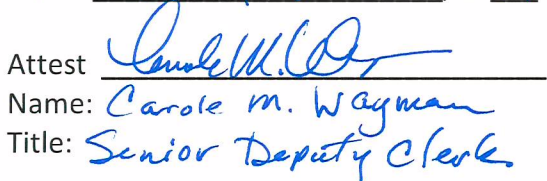 Attest Carole M. W
Name: Carole M. Wayman
Title: Senior Deputy Clerk